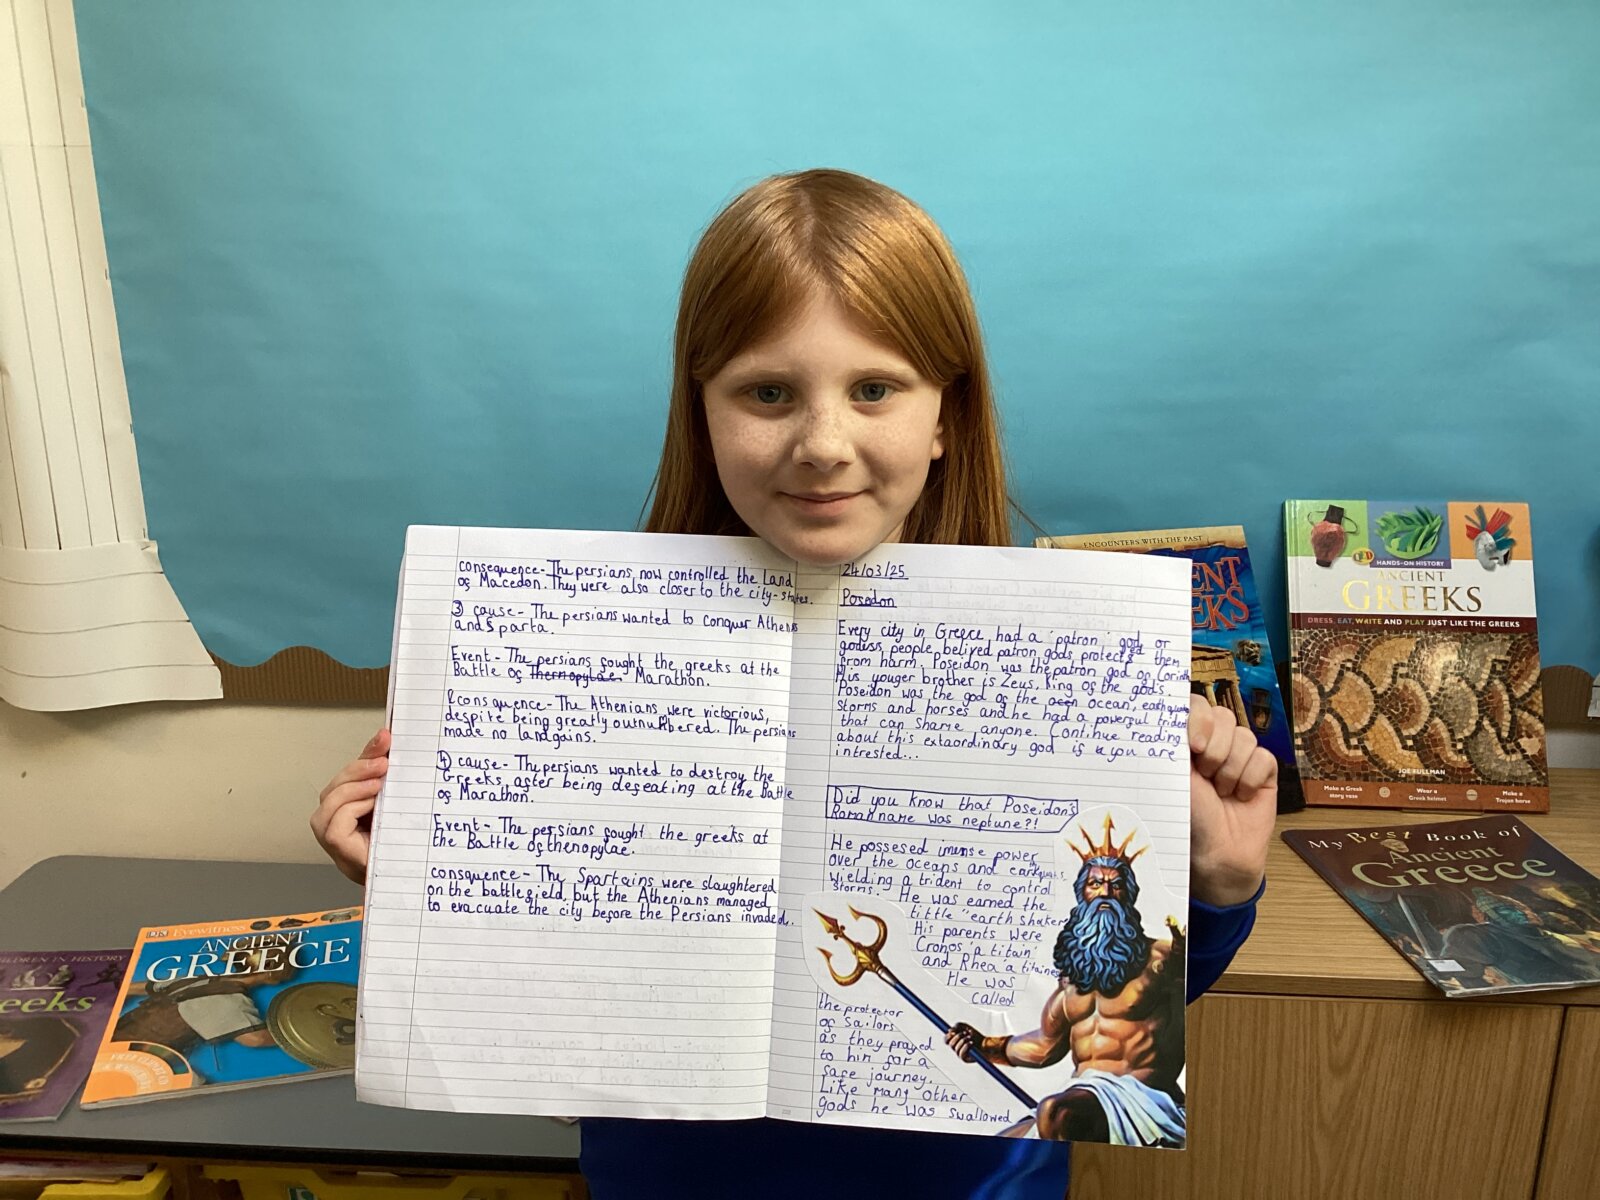 consequence- The persians now controlled the Land
of Macedon. They were also closer to the city-states.
③ cause- The persians wanted to conquer Athens
and Sparta.
Event- The persians fought the greeks at the
Battle of thernopylae Marathon.
consquence- The Athenians were victorious,
despite being greatly outnumbered. The persians
made no land gains.
④ cause- The persians wanted to destroy the
Greeks, after being defeating at the Battle
of Marathon.
Event- The persians fought the greeks at
the Battle of thenopylae.
consquence- The Spartains were slaughtered
on the battlefield, but the Athenians managed
to evacuate the city before the Persians invaded.
24/03/25
Poseidon
Every city in Greece had a 'patron' god or
godess, people belived patron gods protects them
from harm. Poseidon was the patron god of Corinth
His youger brother is Zeus, King of the gods.
Poseidon was the god of the ocen ocean, earthquakes
storms and horses and he had a powerful trident
that can shame anyone. Continue reading
about this extaordinary god if you are
intrested...
Did you know that Poseidon's
Roman name was neptune?!
He possesed imense power
over the oceans and earthquakes
wielding a trident to control
storms. He was earned the
tittle "earth shaker"
His parents were
Cronos 'a titain'
and Rhea 'a titaines
He was
called
the protector
of Sailors
as they prayed
to him for a
safe journey.
Like many other
gods he was swallowed
ENCOUNTERS WITH THE PAST
HANDS-ON HISTORY
ANCIENT
GREEKS
DRESS, EAT, WRITE AND PLAY JUST LIKE THE GREEKS
JOE FULLMAN
Make a Greek
story vase
Wear a
Greek helmet
Make a
Trojan horse
My Best Book of
Ancient
Greece
DK Eyewitness
ANCIENT
GREECE
CHILDREN IN HISTORY
Greeks